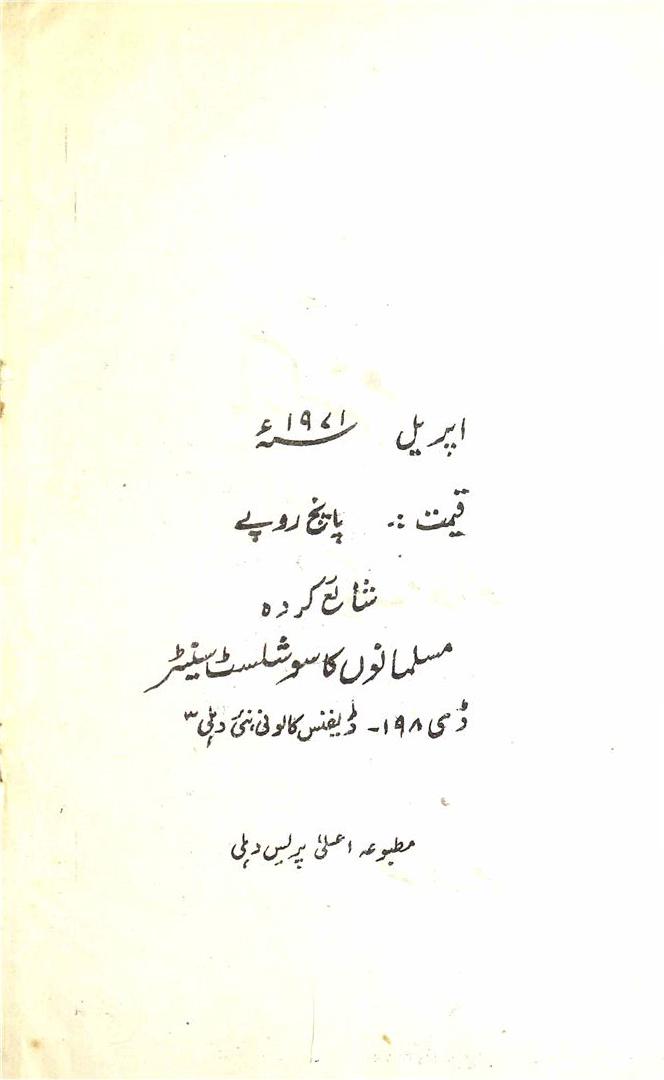 اپریل ۱۹۷۱ء
قیمت :۔ پانچ روپے
شائع کردہ
مسلمانوں کا سوشلسٹ سینٹر
ڈی ۱۹۸۔ ڈیفنس کالونی، نئی دہلی ۳
مطبوعہ اعلیٰ پریس دہلی